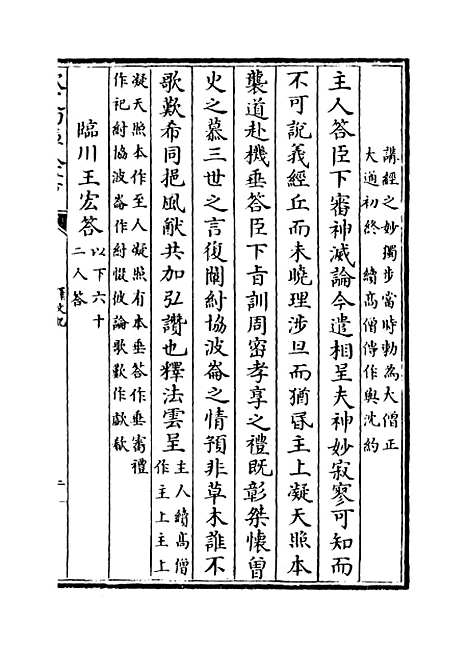 講經之妙獨步當時勅為大僧正
大通初終 續高僧傳作與沈約
主人答臣下審神滅論今遣相呈夫神妙寂寥可知而
不可說義經丘而未曉理涉旦而猶昏主上凝天照本
襲道赴機垂答臣下旨訓周密孝享之禮既彰桀懷曾
火之慕三世之言復闡紂協波崙之情預非草木誰不
歌歎希同挹風猷共加弘讚也釋法雲呈
主人續高僧
作主上主上
凝天照本作至人凝照有本垂答作垂審禮
作祀紂協波崙作紂惙攸論歌歎作歔欷
臨川王宏答
以下六十
二人答